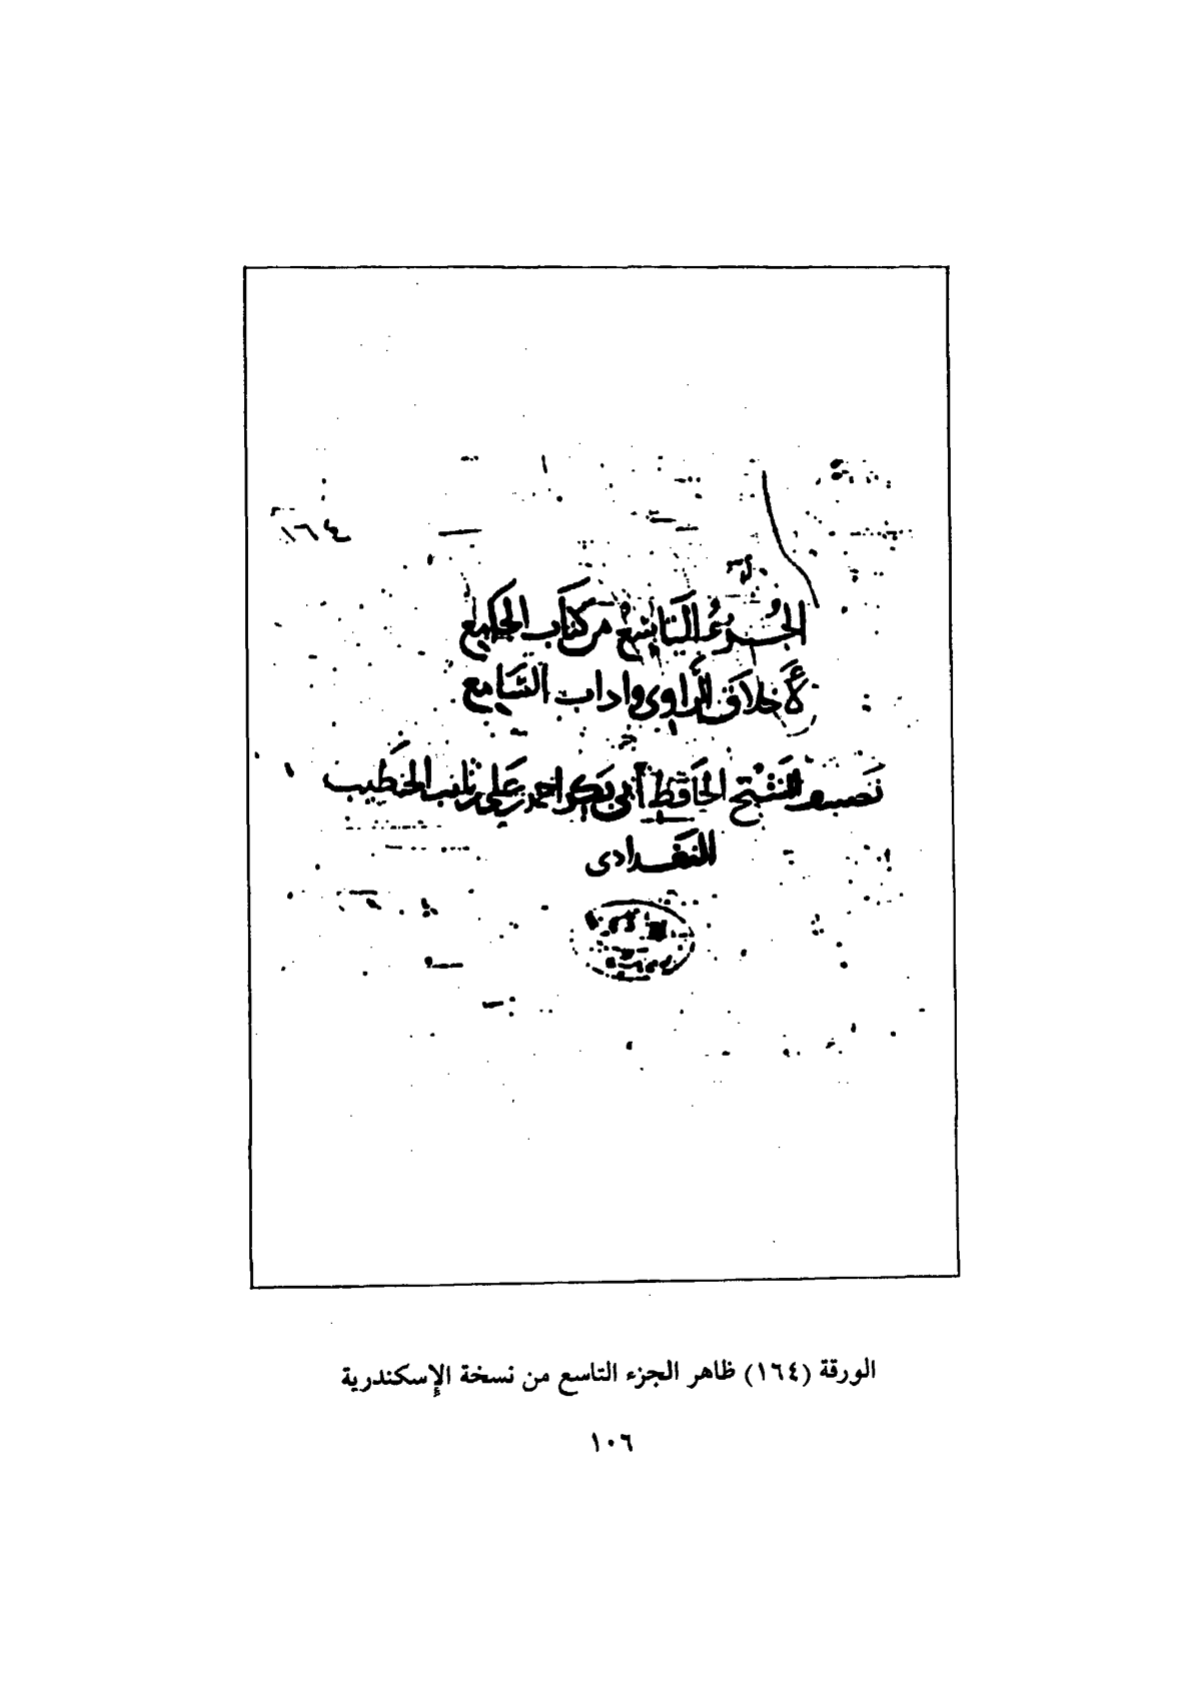 ١٦٤
الجزء التاسع من كتاب الجامع
لأخلاق الراوي واداب السامع
تصنيف الشيخ الحافظ أبي بكر احمد بن علي بن ثابت الخطيب
البغدادي
الورقة (١٦٤) ظاهر الجزء التاسع من نسخة الإسكندرية
١٠٦